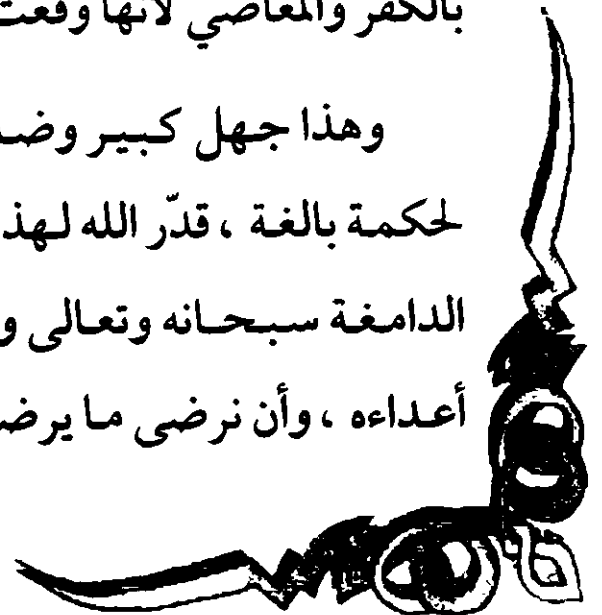 بالكفر والمعاصي لأنها وقعت
وهذا جهل كبير وضـ
لحكمة بالغة ، قدّر الله لـهذ
الدامغة سبحانه وتعالى و
أعداءه ، وأن نرضى ما يرضـ